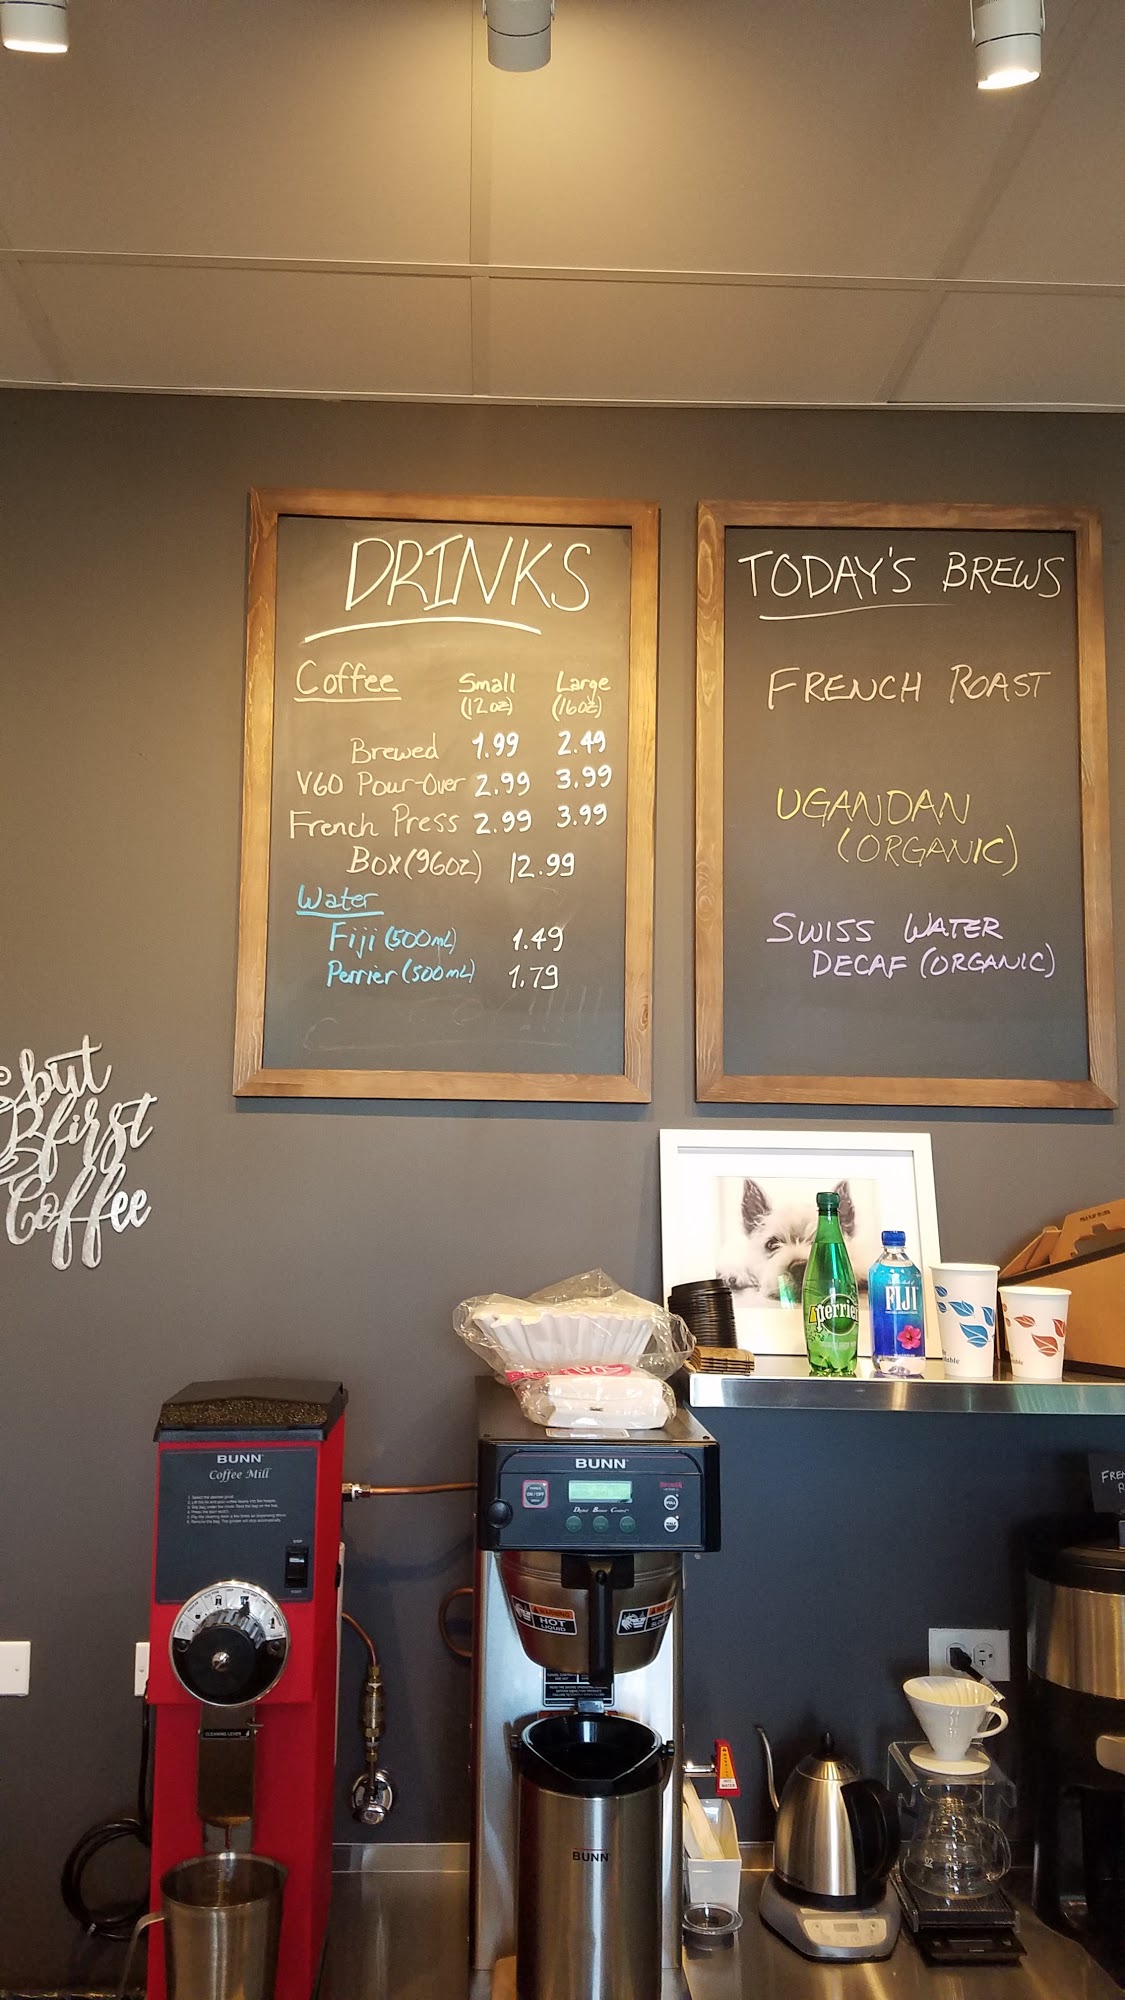 DRINKS
Coffee Small Large
(12oz) (16oz)
Brewed 1.99 2.49
V60 Pour-Over 2.99 3.99
French Press 2.99 3.99
Box (96oz) 12.99
Water
Fiji (500mL) 1.49
Perrier (500mL) 1.79
TODAY'S BREWS
FRENCH ROAST
UGANDAN
(ORGANIC)
SWISS WATER
DECAF (ORGANIC)
but
first
Coffee
perrier
FIJI
BUNN
Coffee Mill
CLEANING LEVER
BUNN
ON / OFF
WARNING
HOT
LIQUID
BUNN